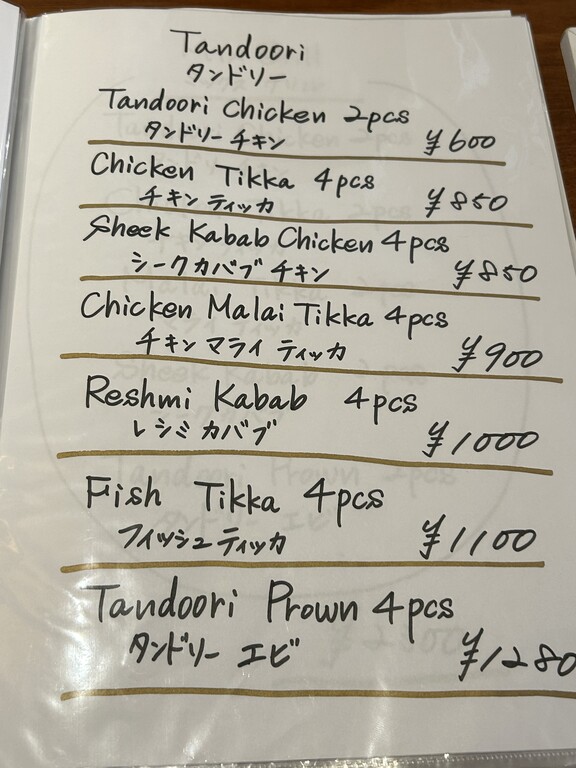 Tandoori
タンドリー
Tandoori Chicken 2pcs
タンドリー チキン ¥600
Chicken Tikka 4pcs
チキン ティッカ ¥850
Sheek Kabab Chicken 4pcs
シークカバブ チキン ¥850
Chicken Malai Tikka 4pcs
チキン マライ ティッカ ¥900
Reshmi Kabab 4pcs
レシミ カバブ ¥1000
Fish Tikka 4pcs
フィッシュ ティッカ ¥1100
Tandoori Prown 4pcs
タンドリー エビ ¥1280